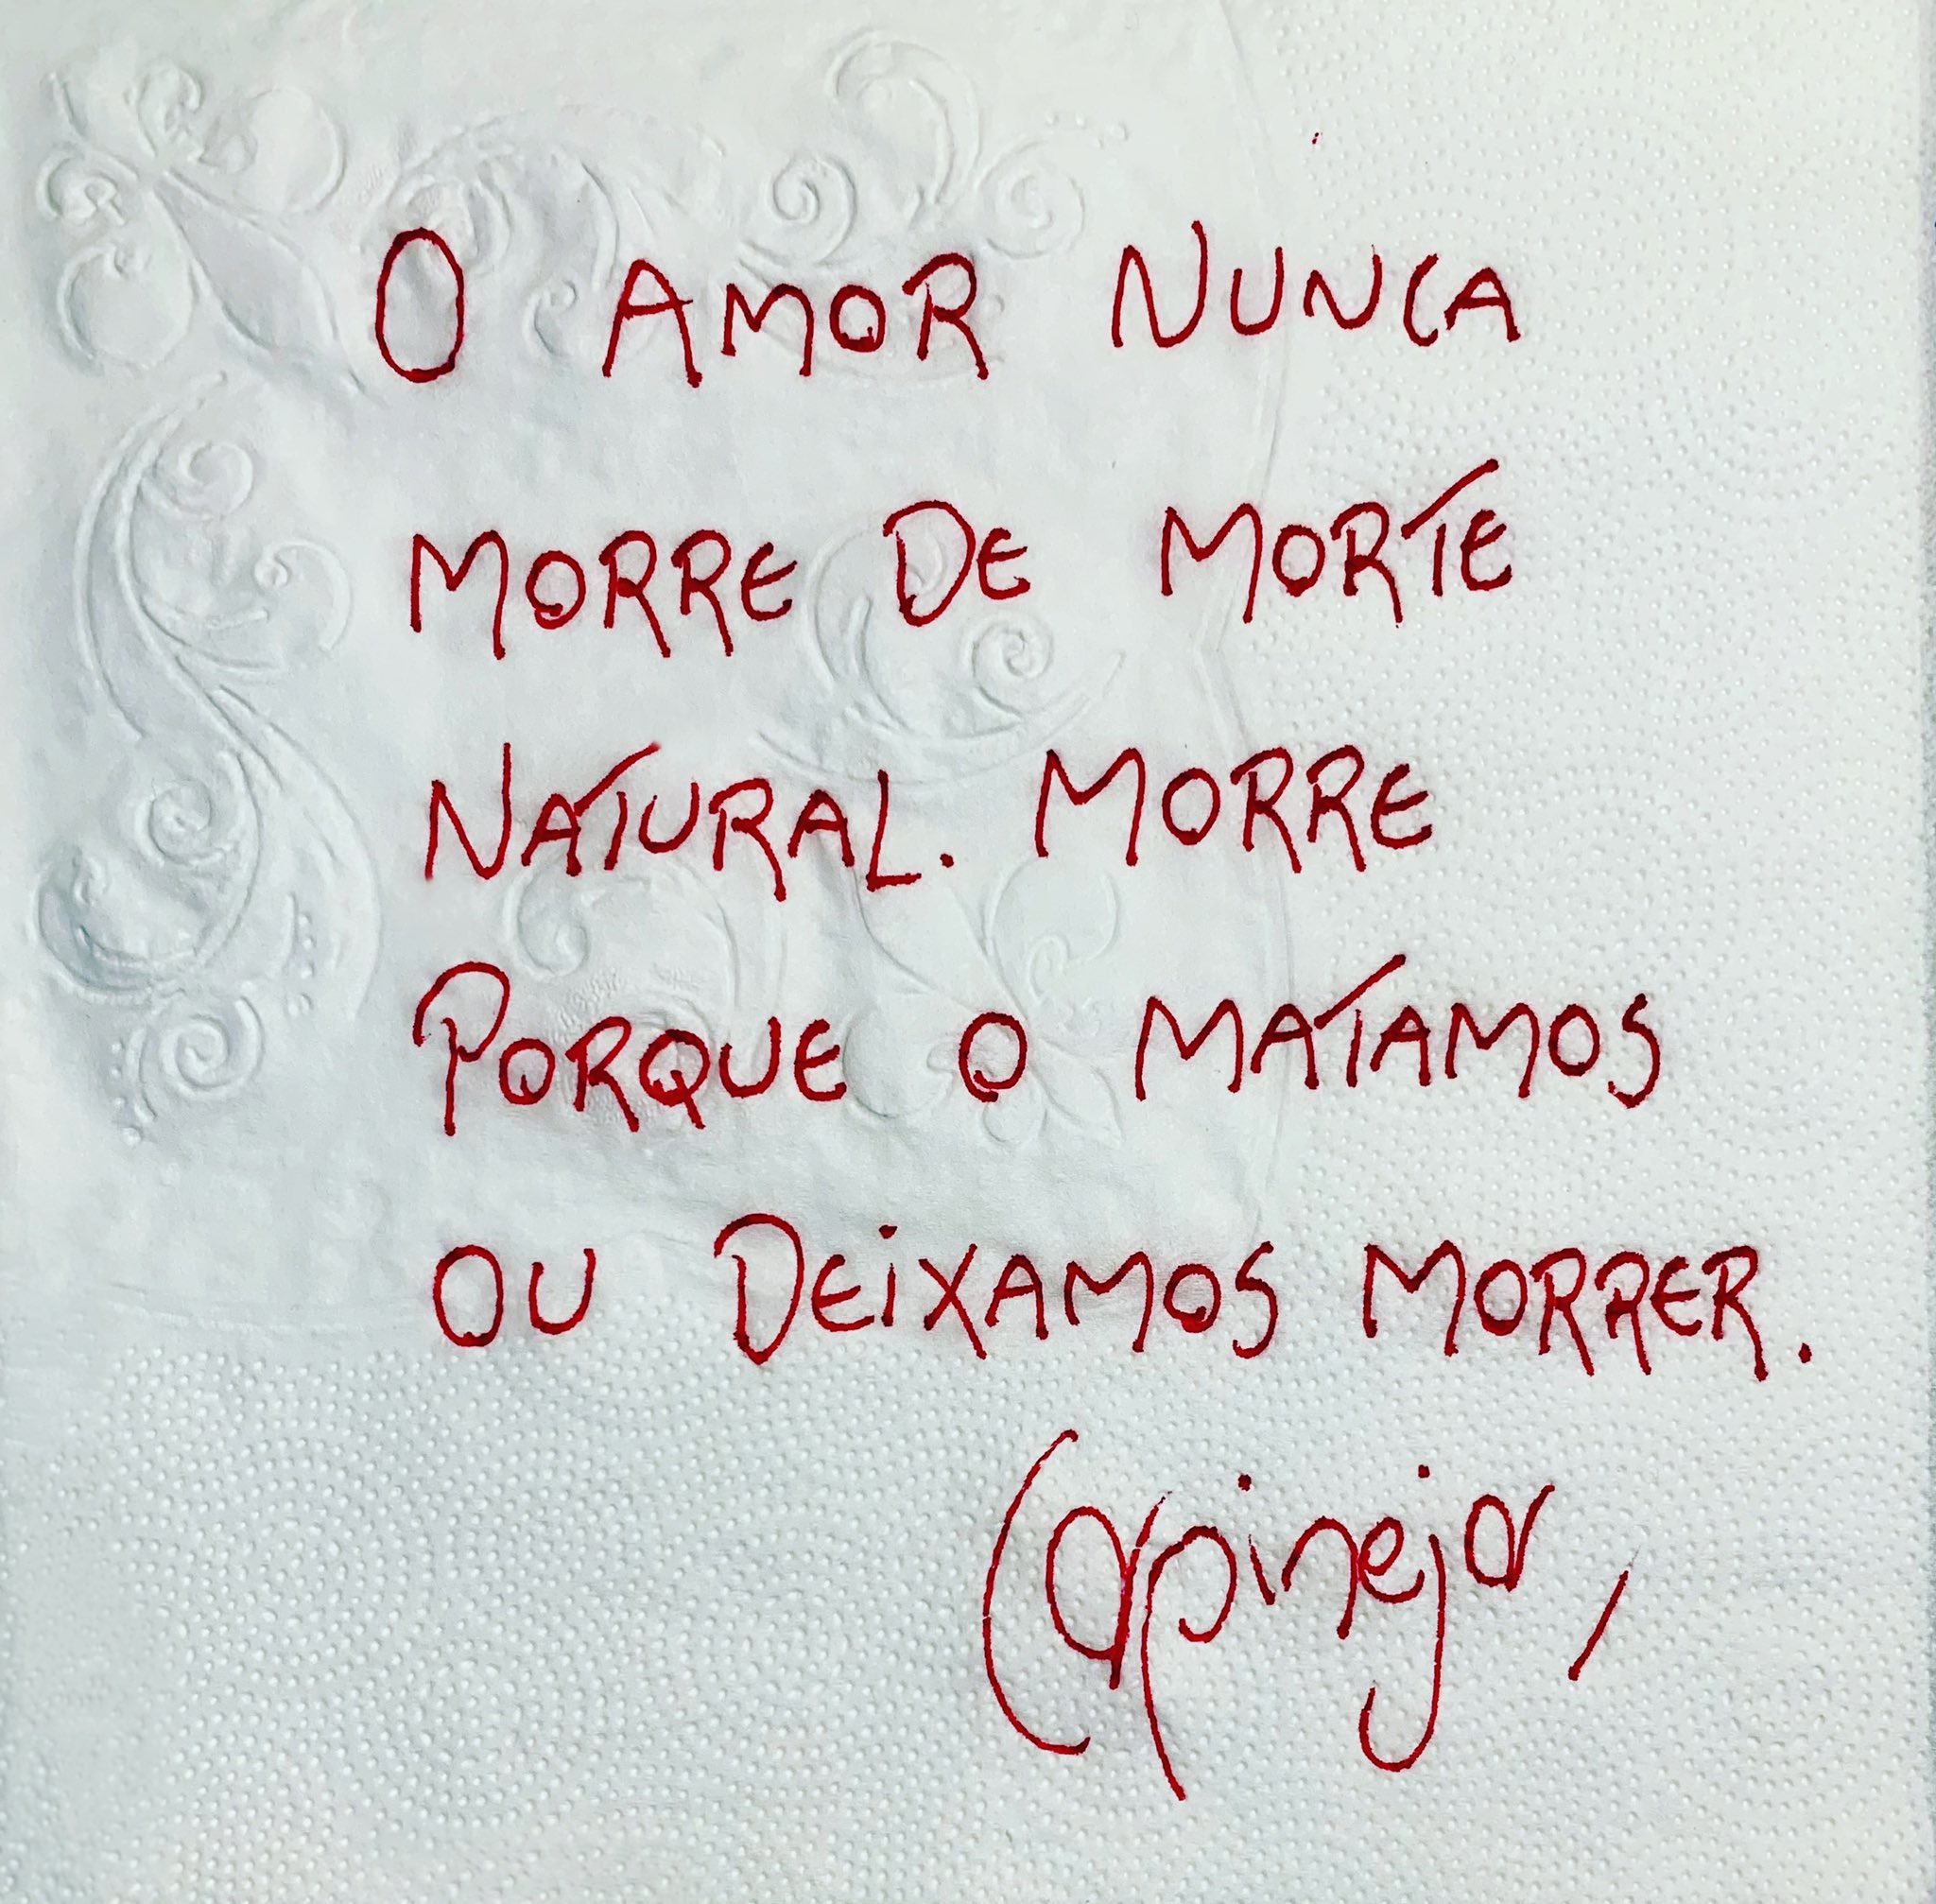 O AMOR NUNCA
MORRE DE MORTE
NATURAL. MORRE
PORQUE O MATAMOS
OU DEIXAMOS MORRER.
Carpinejar,